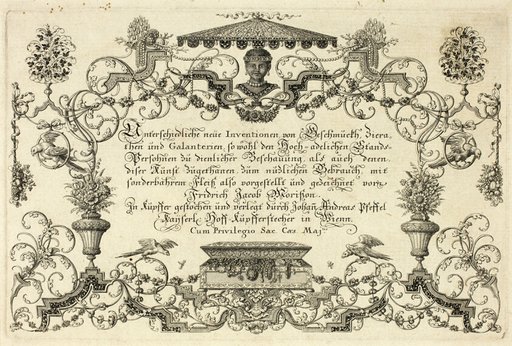 Unterschiedliche neüe Inventionen von Geschmückh, Ziera
then und Galanterien, so wohl den Hoch-adelichen Stands-
Persohnen zu dienlicher Beschauung, als auch denen
diser Kunst zugethanen zum nüzlichen Gebrauch, mit
sonderbahrem Fleiß also vorgestellt und gezeichnet vom
Fridrich Jacob Morißon.
In Kupffer gestochen und verlegt durch Johan Andreas Pfeffel
Kayserl. Hoff-Kupfferstecher in Wienn.
Cum Privilegio Sac. Cæs Maj: